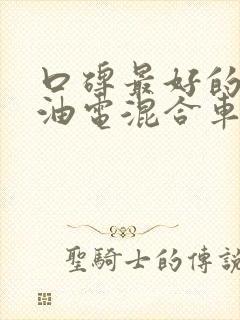 口碑最好的
油電混合車
聖騎士的傳說